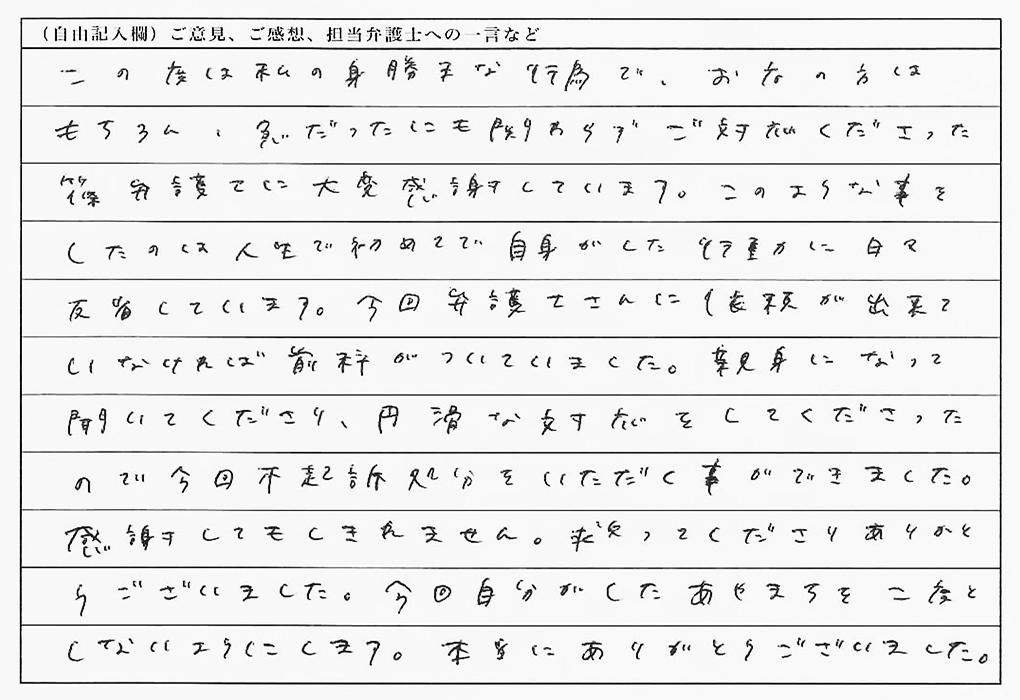 （自由記入欄）ご意見、ご感想、担当弁護士への一言など
この度は私の身勝手な行為で、の方は
もちろん、急だったにも関わらずご対応くださった
篠弁護士に大変感謝しています。このような事を
したのは人生で初めてで自身がした行動に日々
反省しています。今回弁護士さんに依頼が出来て
いなければ前科がついていました。親身になって
聞いてくださり、円滑な対応をしてくださった
ので今回不起訴処分をいただく事ができました。
感謝してもしきれません。救ってくださりありがと
うございました。今回自分がしたあやまちを二度と
しないようにします。本当にありがとうございました。